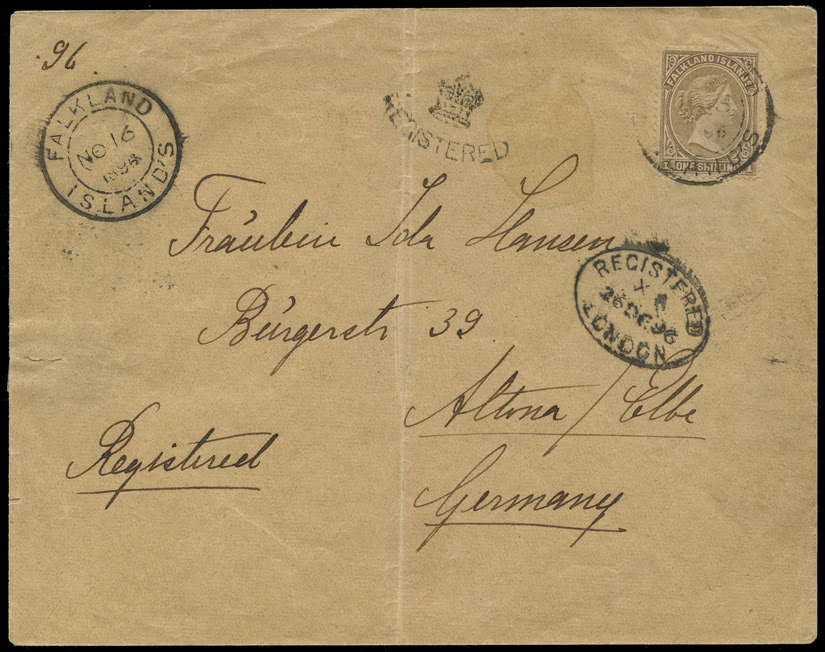 96.
FALKLAND
NO 16
1896
ISLAND'S
REGISTERED
FALKLAND ISLANDS
ONE SHILLING
96
D'S
Fräulein Ida Hansen
REGISTERED
26 DE 96
LONDON
Bürgerstr 39
Altona / Elbe
Registered
Germany